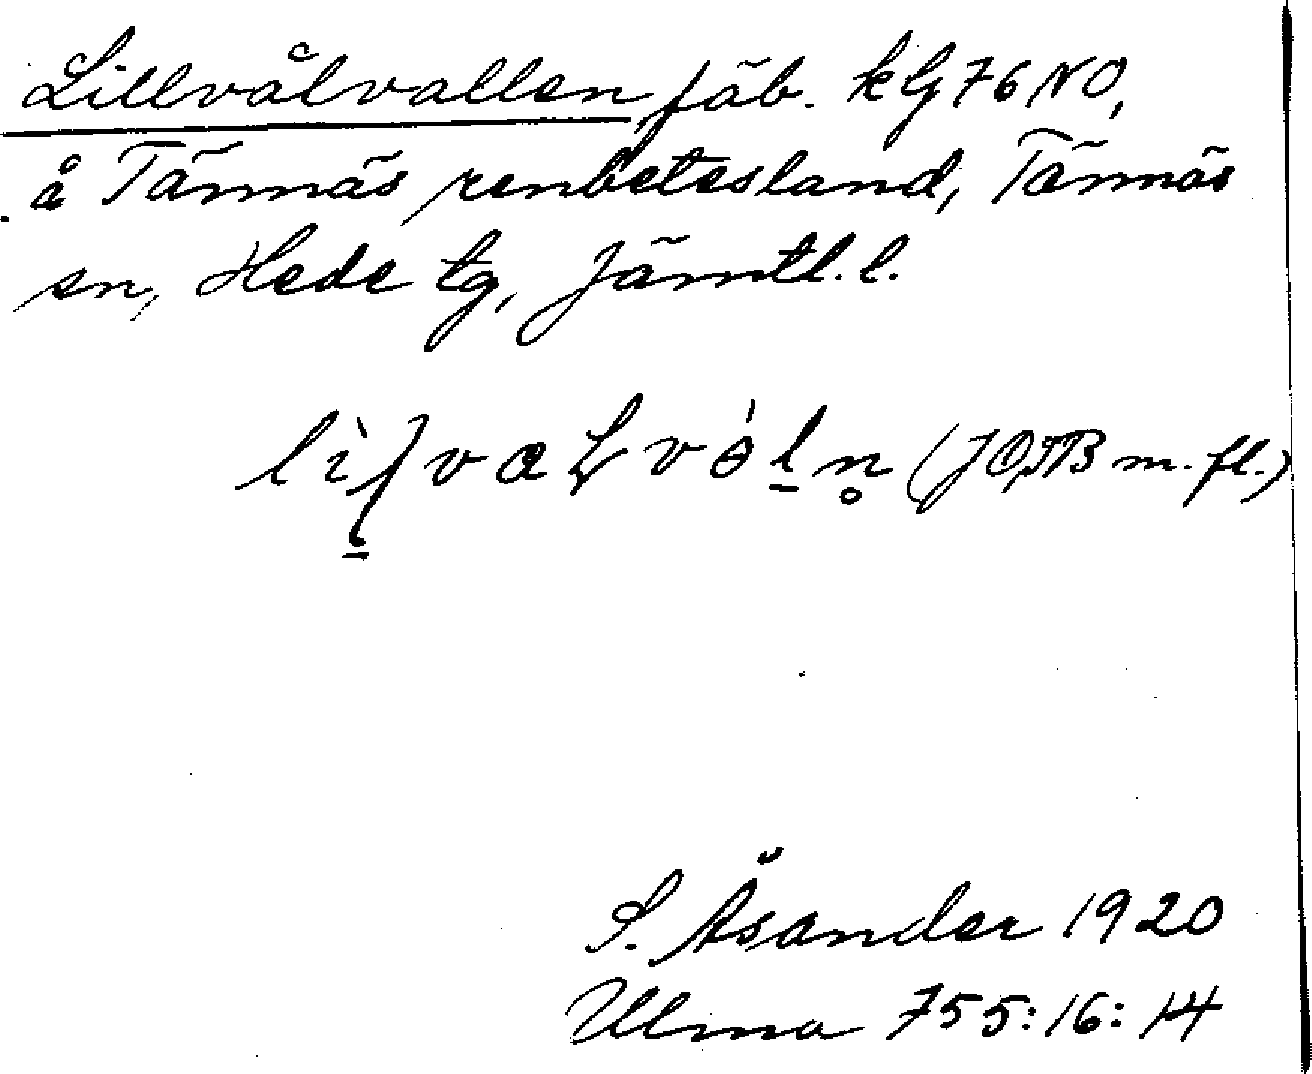 Lillvålvallen, fäb. kG76NO,
å Tännäs renbetesland, Tännäs
sn, Hede tg, Jämtl. l.
(JO, JB m. fl.)
S. Åsander 1920
Ulma 755:16:14